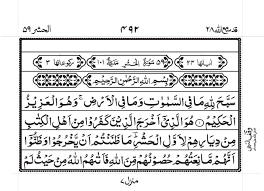 قد سمع الله ٢٨ ٤٩٢ الحشر ٥٩
اٰیاتها ٢٣ ٥٩ سُوْرَةُ الْحَشْرِ مَدَنِیَّةٌ ١٠١ رکوعاتها ٣
بِسْمِ اللّٰهِ الرَّحْمٰنِ الرَّحِیْمِ
سَبَّحَ لِلّٰهِ مَا فِی السَّمٰوٰتِ وَمَا فِی الْاَرْضِ ۚ وَهُوَ الْعَزِیْزُ
الْحَكِیْمُ ① هُوَ الَّذِیْۤ اَخْرَجَ الَّذِیْنَ كَفَرُوْا مِنْ اَهْلِ الْكِتٰبِ
مِنْ دِیَارِهِمْ لِاَوَّلِ الْحَشْرِ ؔ مَا ظَنَنْتُمْ اَنْ یَّخْرُجُوْا وَظَنُّوْۤا
اَنَّهُمْ مَّانِعَتُهُمْ حُصُوْنُهُمْ مِّنَ اللّٰهِ فَاَتٰىهُمُ اللّٰهُ مِنْ حَیْثُ لَمْ
منزل ٧